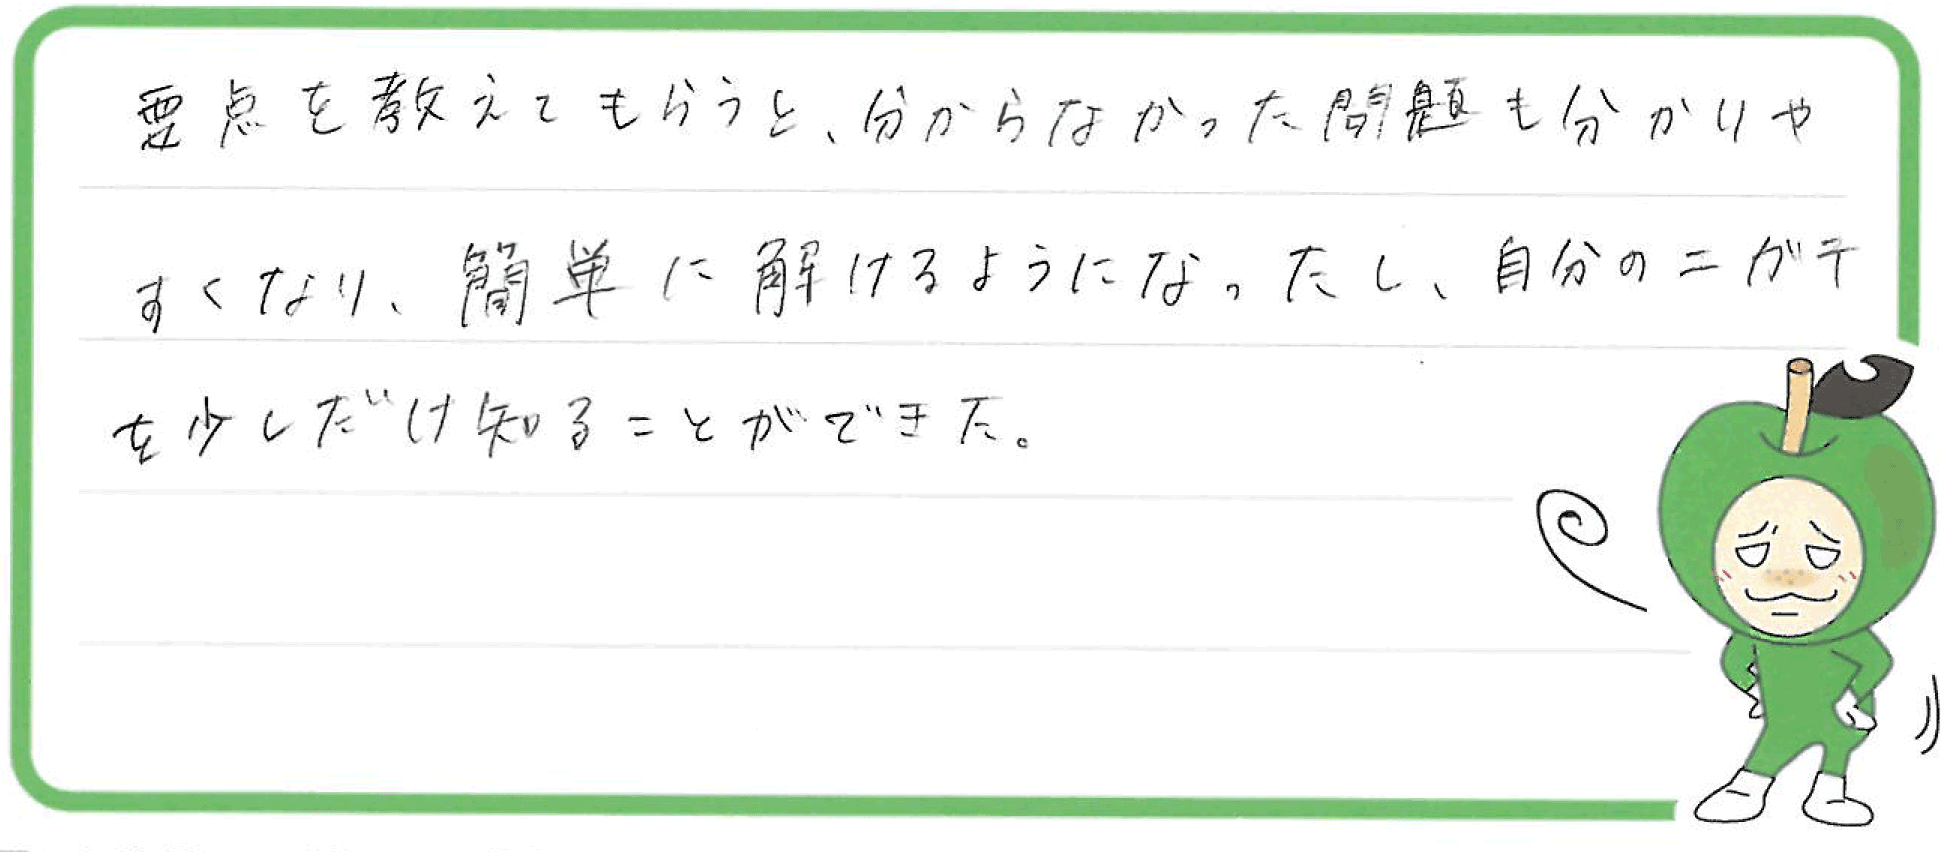 要点を教えてもらうと、分からなかった問題も分かりや
すくなり、簡単に解けるようになったし、自分のニガテ
を少しだけ知ることができた。